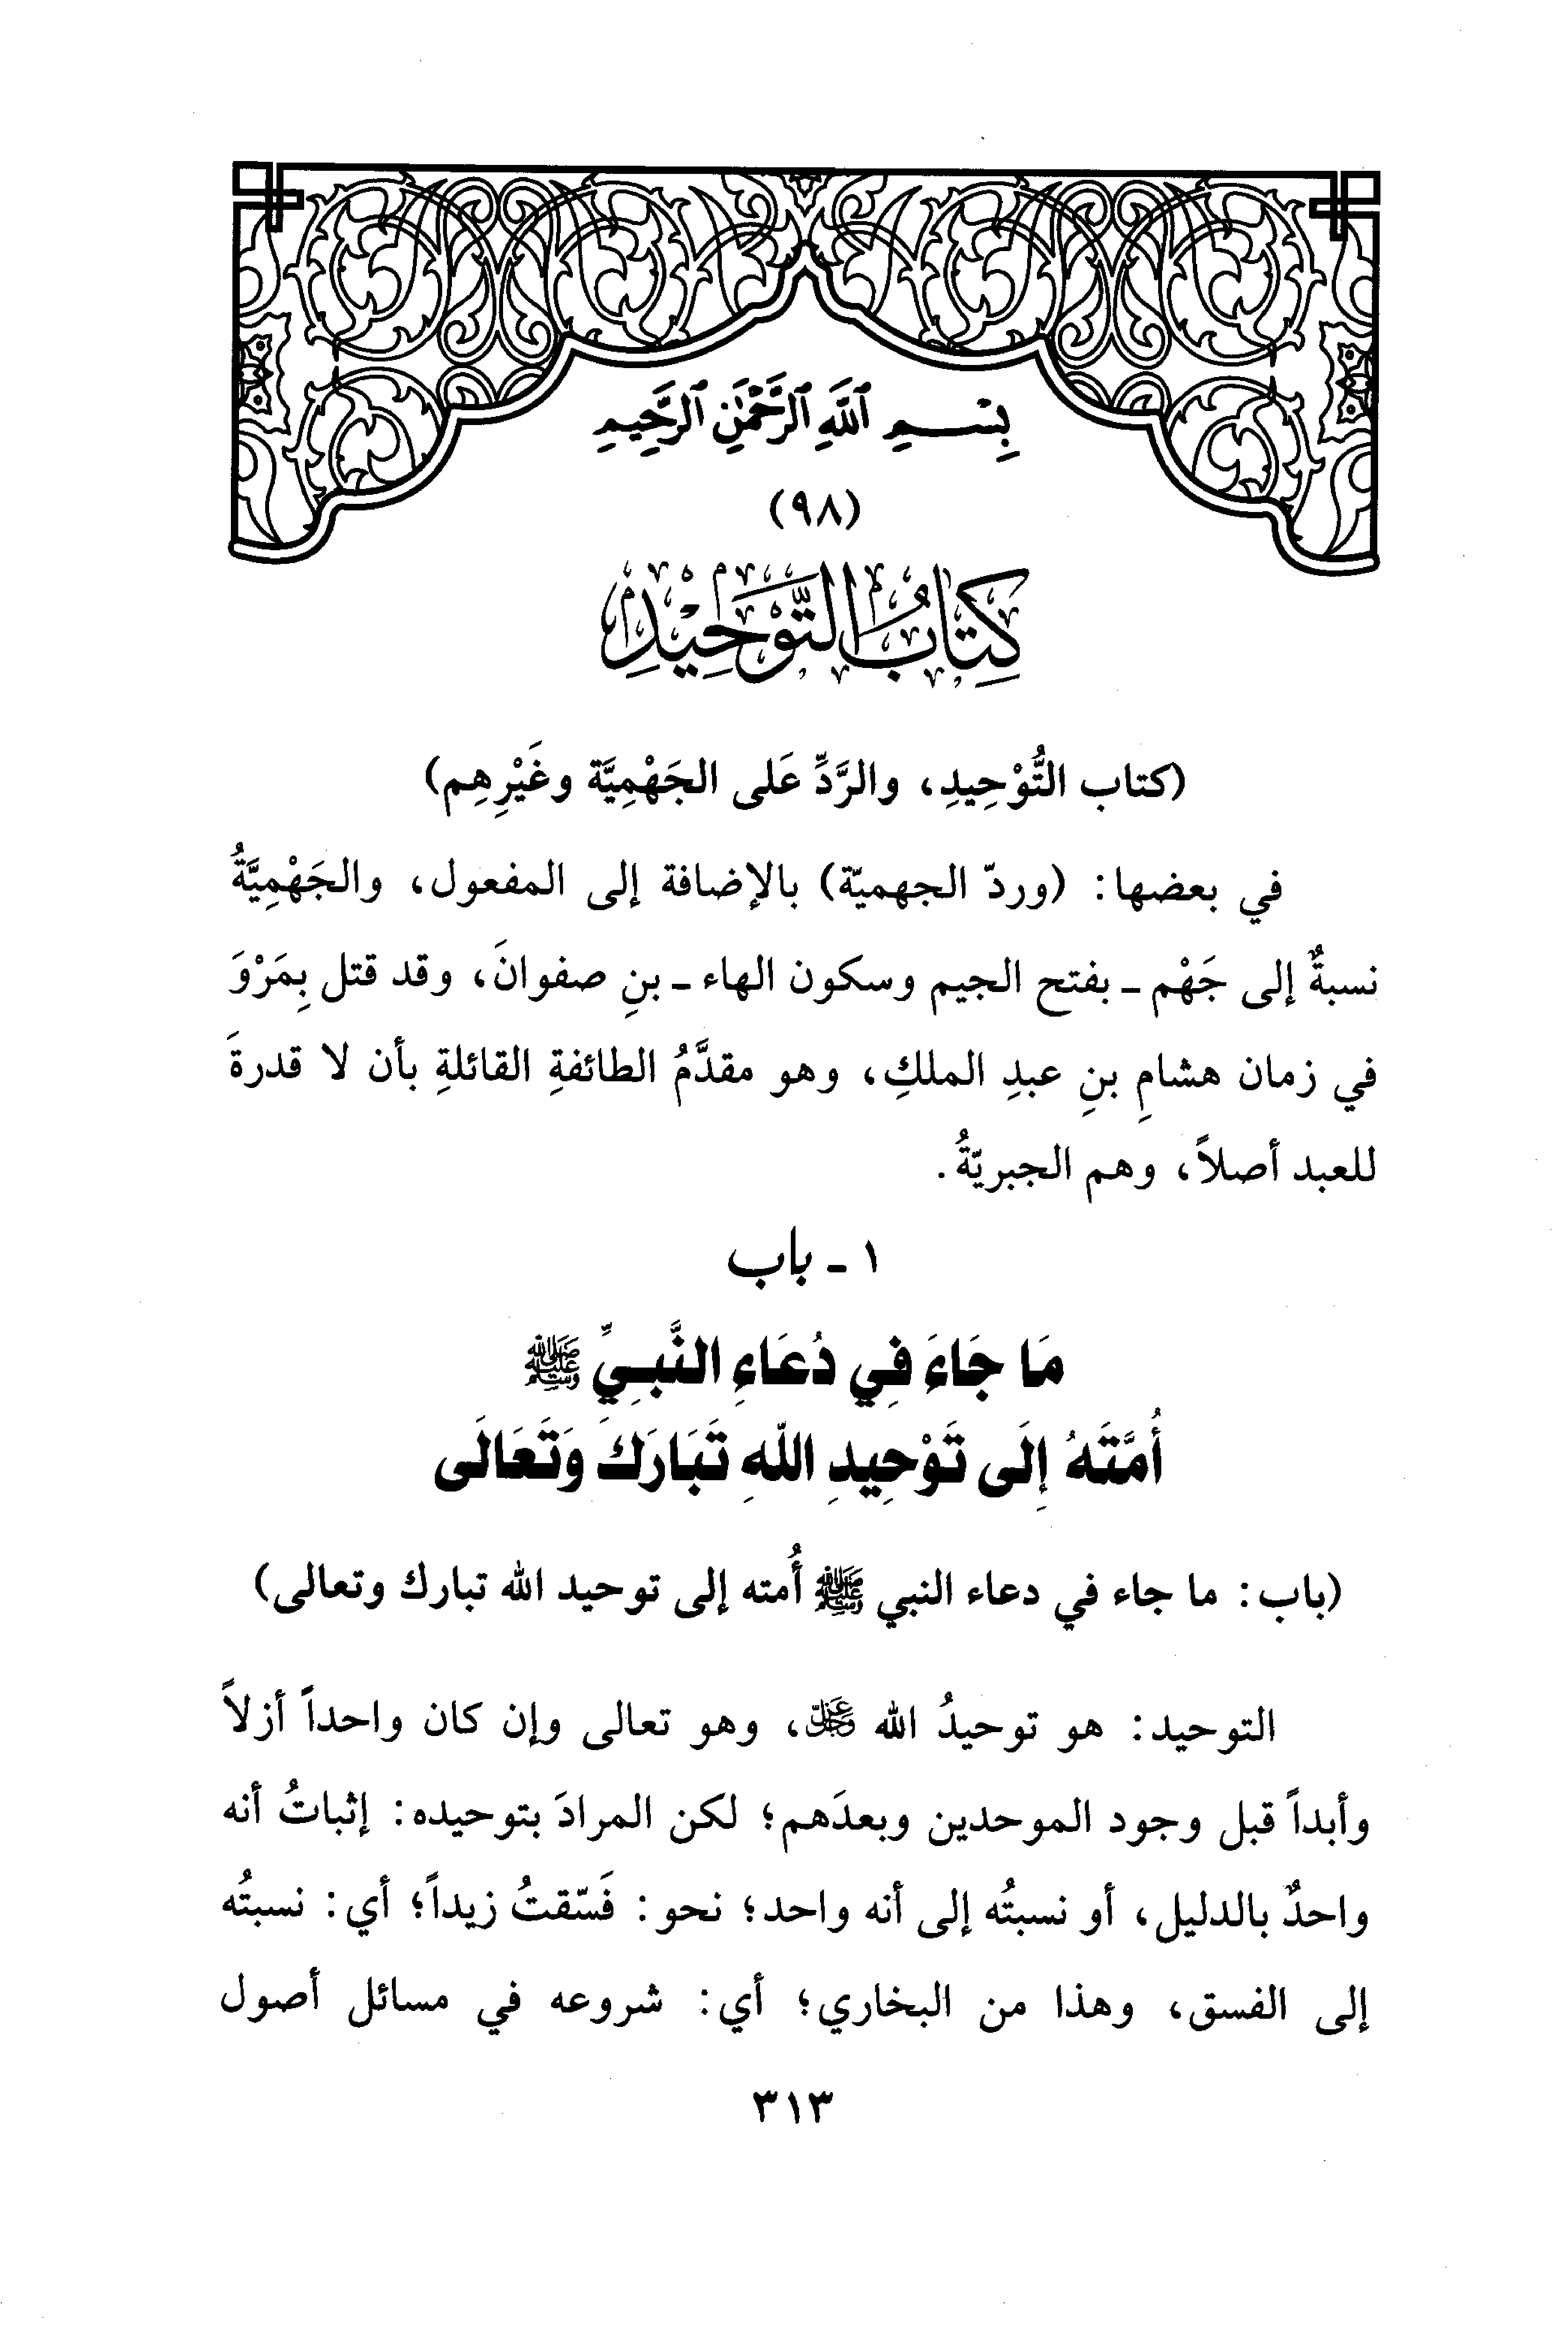 بِسْمِ ٱللَّهِ ٱلرَّحْمَٰنِ ٱلرَّحِيمِ
(٩٨)
كِتَابُ التَّوْحِيْدِ
(كتاب التُّوْحِيدِ، والرَّدِّ عَلى الجَهْمِيَّة وغَيْرِهِم)
في بعضها: (وردّ الجهميّة) بالإضافة إلى المفعول، والجَهْمِيَّةُ
نسبةٌ إلى جَهْم - بفتح الجيم وسكون الهاء - بنِ صفوانَ، وقد قتل بِمَرْوَ
في زمان هشامِ بنِ عبدِ الملكِ، وهو مقدَّمُ الطائفةِ القائلةِ بأن لا قدرةَ
للعبد أصلاً، وهم الجبريّةُ.
١ - باب
مَا جَاءَ فِي دُعَاءِ النَّبِيِّ ﷺ
أُمَّتَهُ إِلَى تَوْحِيدِ اللهِ تَبَارَكَ وَتَعَالَى
(باب: ما جاء في دعاء النبي ﷺ أُمته إلى توحيد الله تبارك وتعالى)
التوحيد: هو توحيدُ الله عَزَّ وَجَلَّ، وهو تعالى وإن كان واحداً أزلاً
وأبداً قبل وجود الموحدين وبعدَهم؛ لكن المرادَ بتوحيده: إثباتُ أنه
واحدٌ بالدليل، أو نسبتُه إلى أنه واحد؛ نحو: فَسّقتُ زيداً؛ أي: نسبتُه
إلى الفسق، وهذا من البخاري؛ أي: شروعه في مسائل أصول
٣١٣